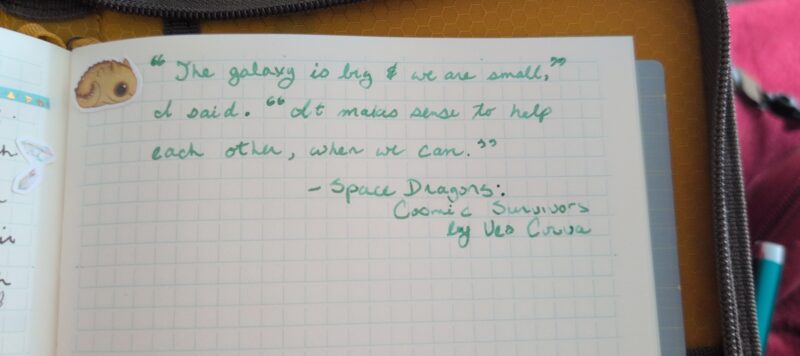 "The galaxy is big & we are small,"
I said. "It makes sense to help
each other, when we can."
- Space Dragons:
Cosmic Survivors
by Veo Corva